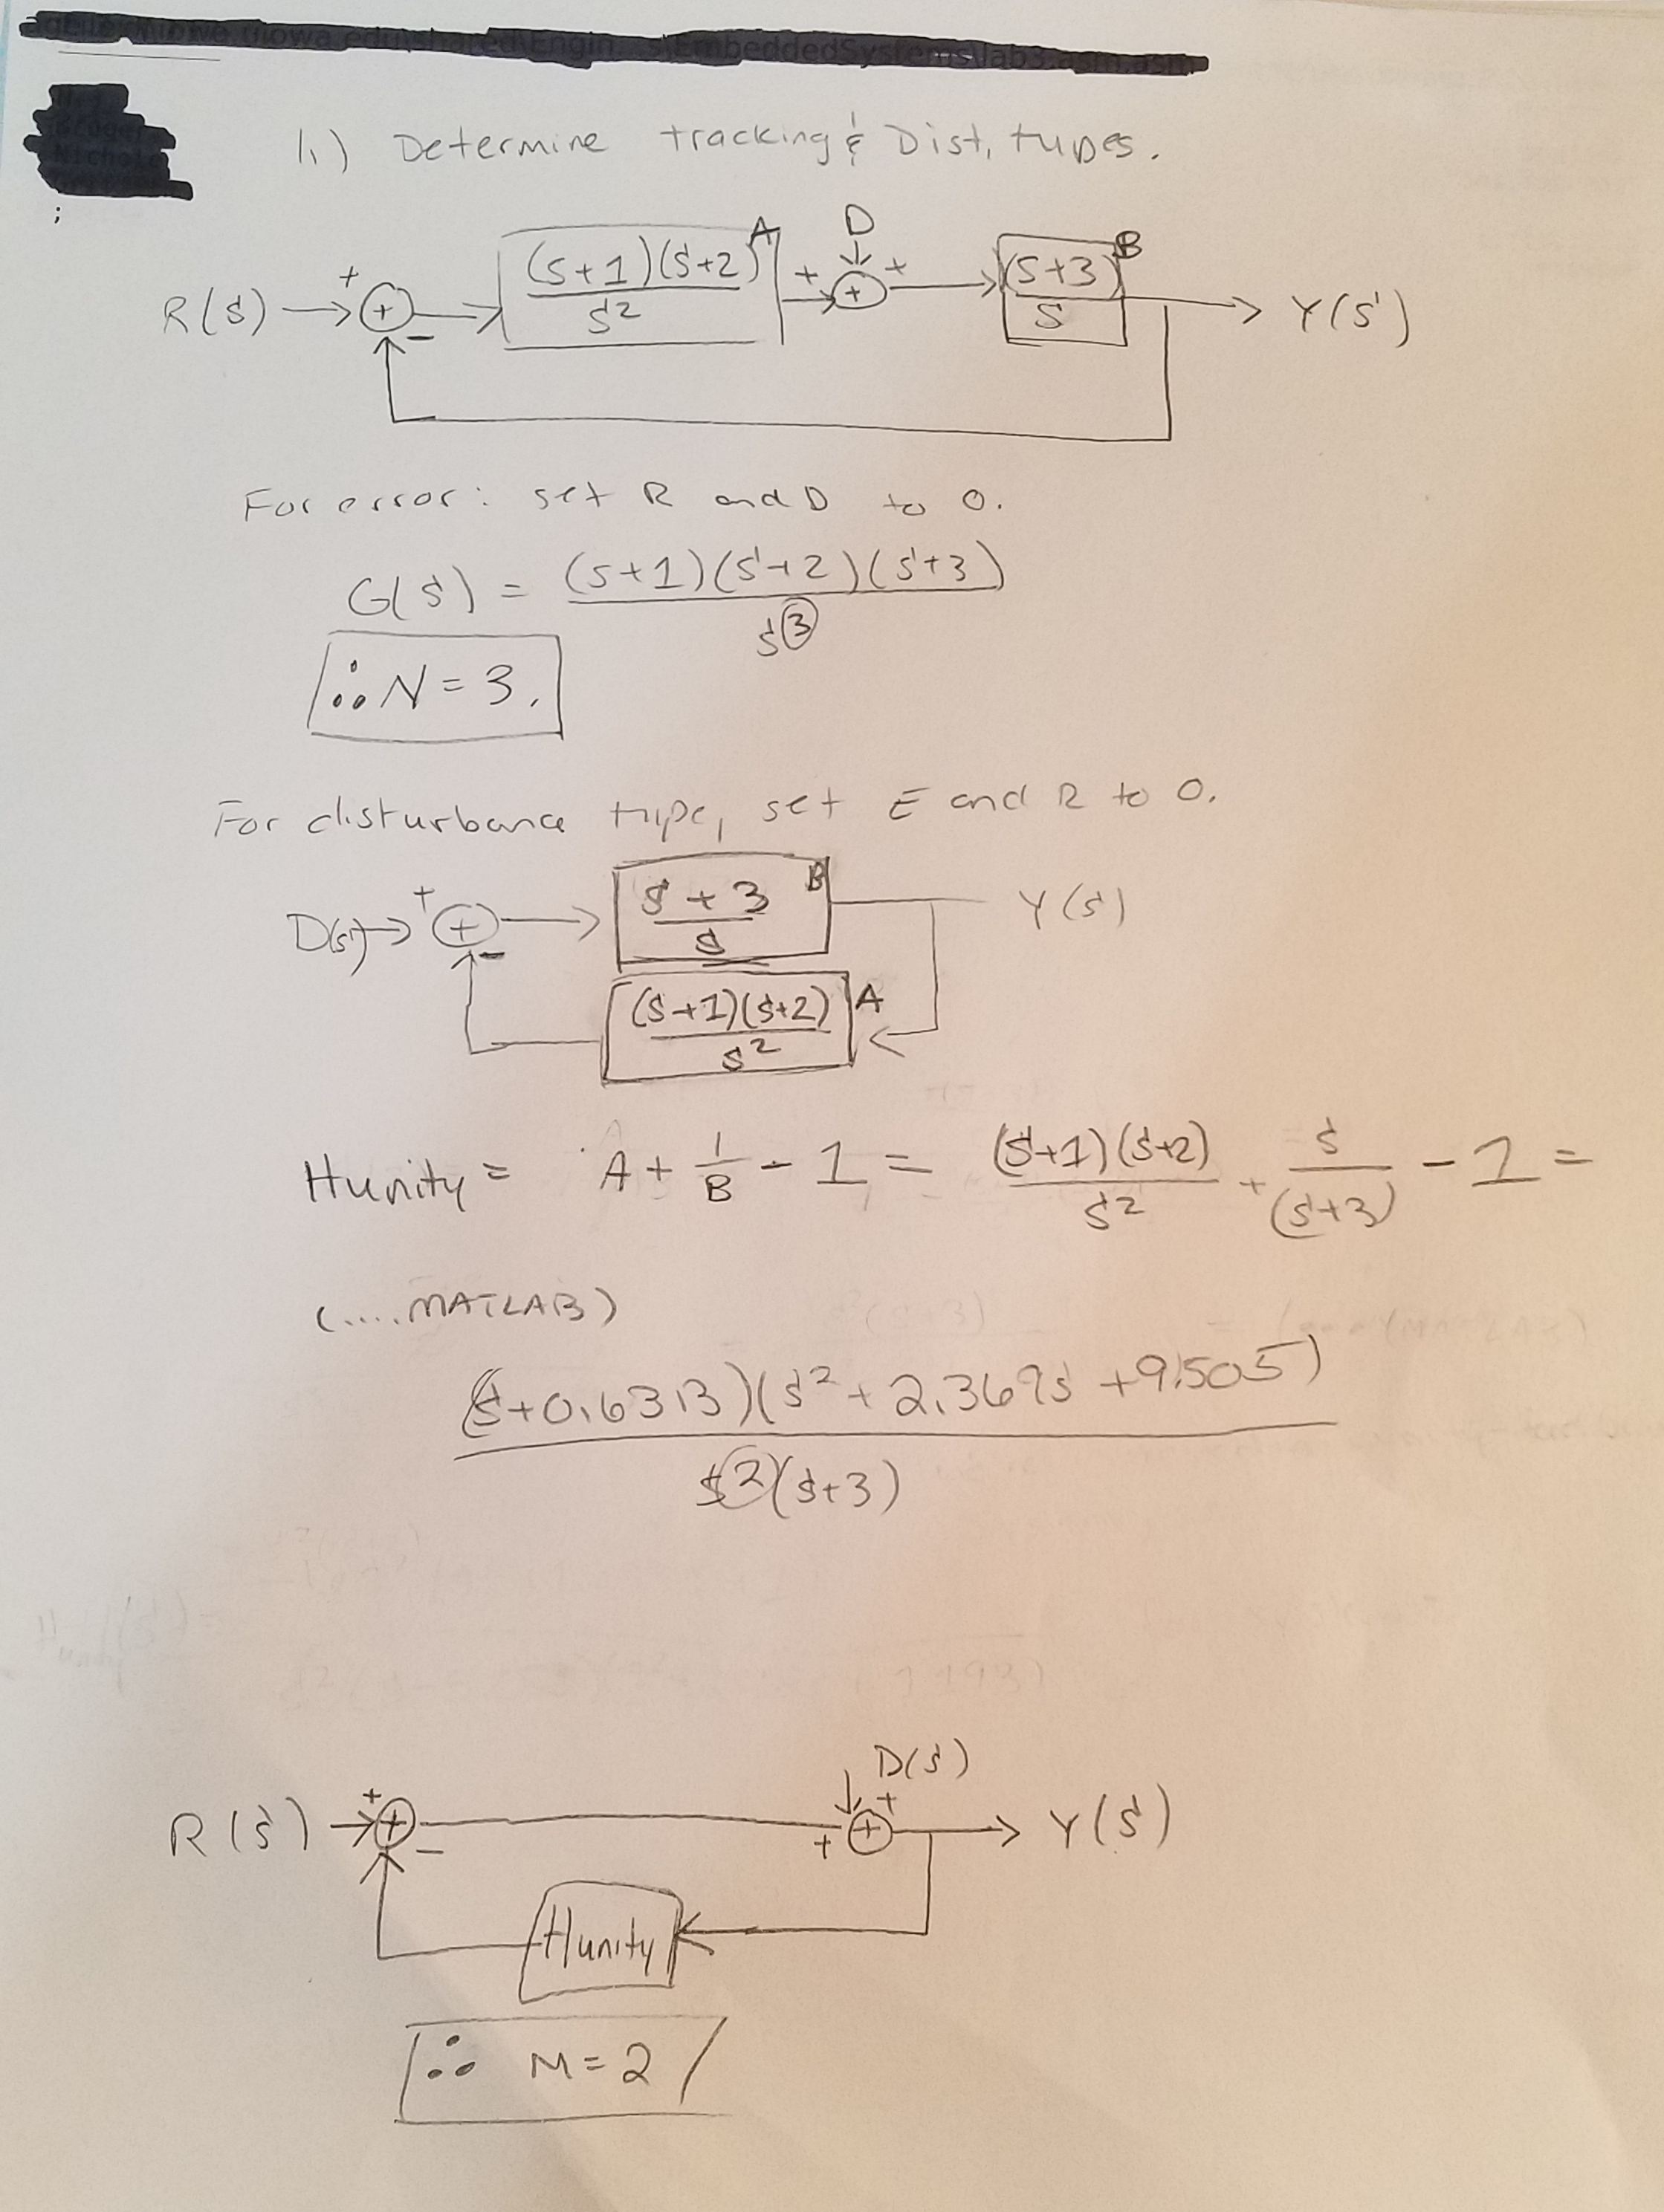 1.) Determine tracking & Dist. types.
D
R(s) + + - (s+1)(s+2) / s² A + + + (s+3) / s B Y(s)
For error: set R and D to 0.
G(s) = (s+1)(s+2)(s+3) / s³
∴ N = 3.
For disturbance type, set E and R to 0.
D(s) + + - s+3 / s B Y(s)
(s+1)(s+2) / s² A
Hunity = A + 1/B - 1 = (s+1)(s+2) / s² + s / (s+3) - 1 =
(....MATLAB)
(s+0.6313)(s²+2.369s+9.505) / s²(s+3)
D(s)
R(s) + + - + + + Y(s)
Hunity
∴ M=2